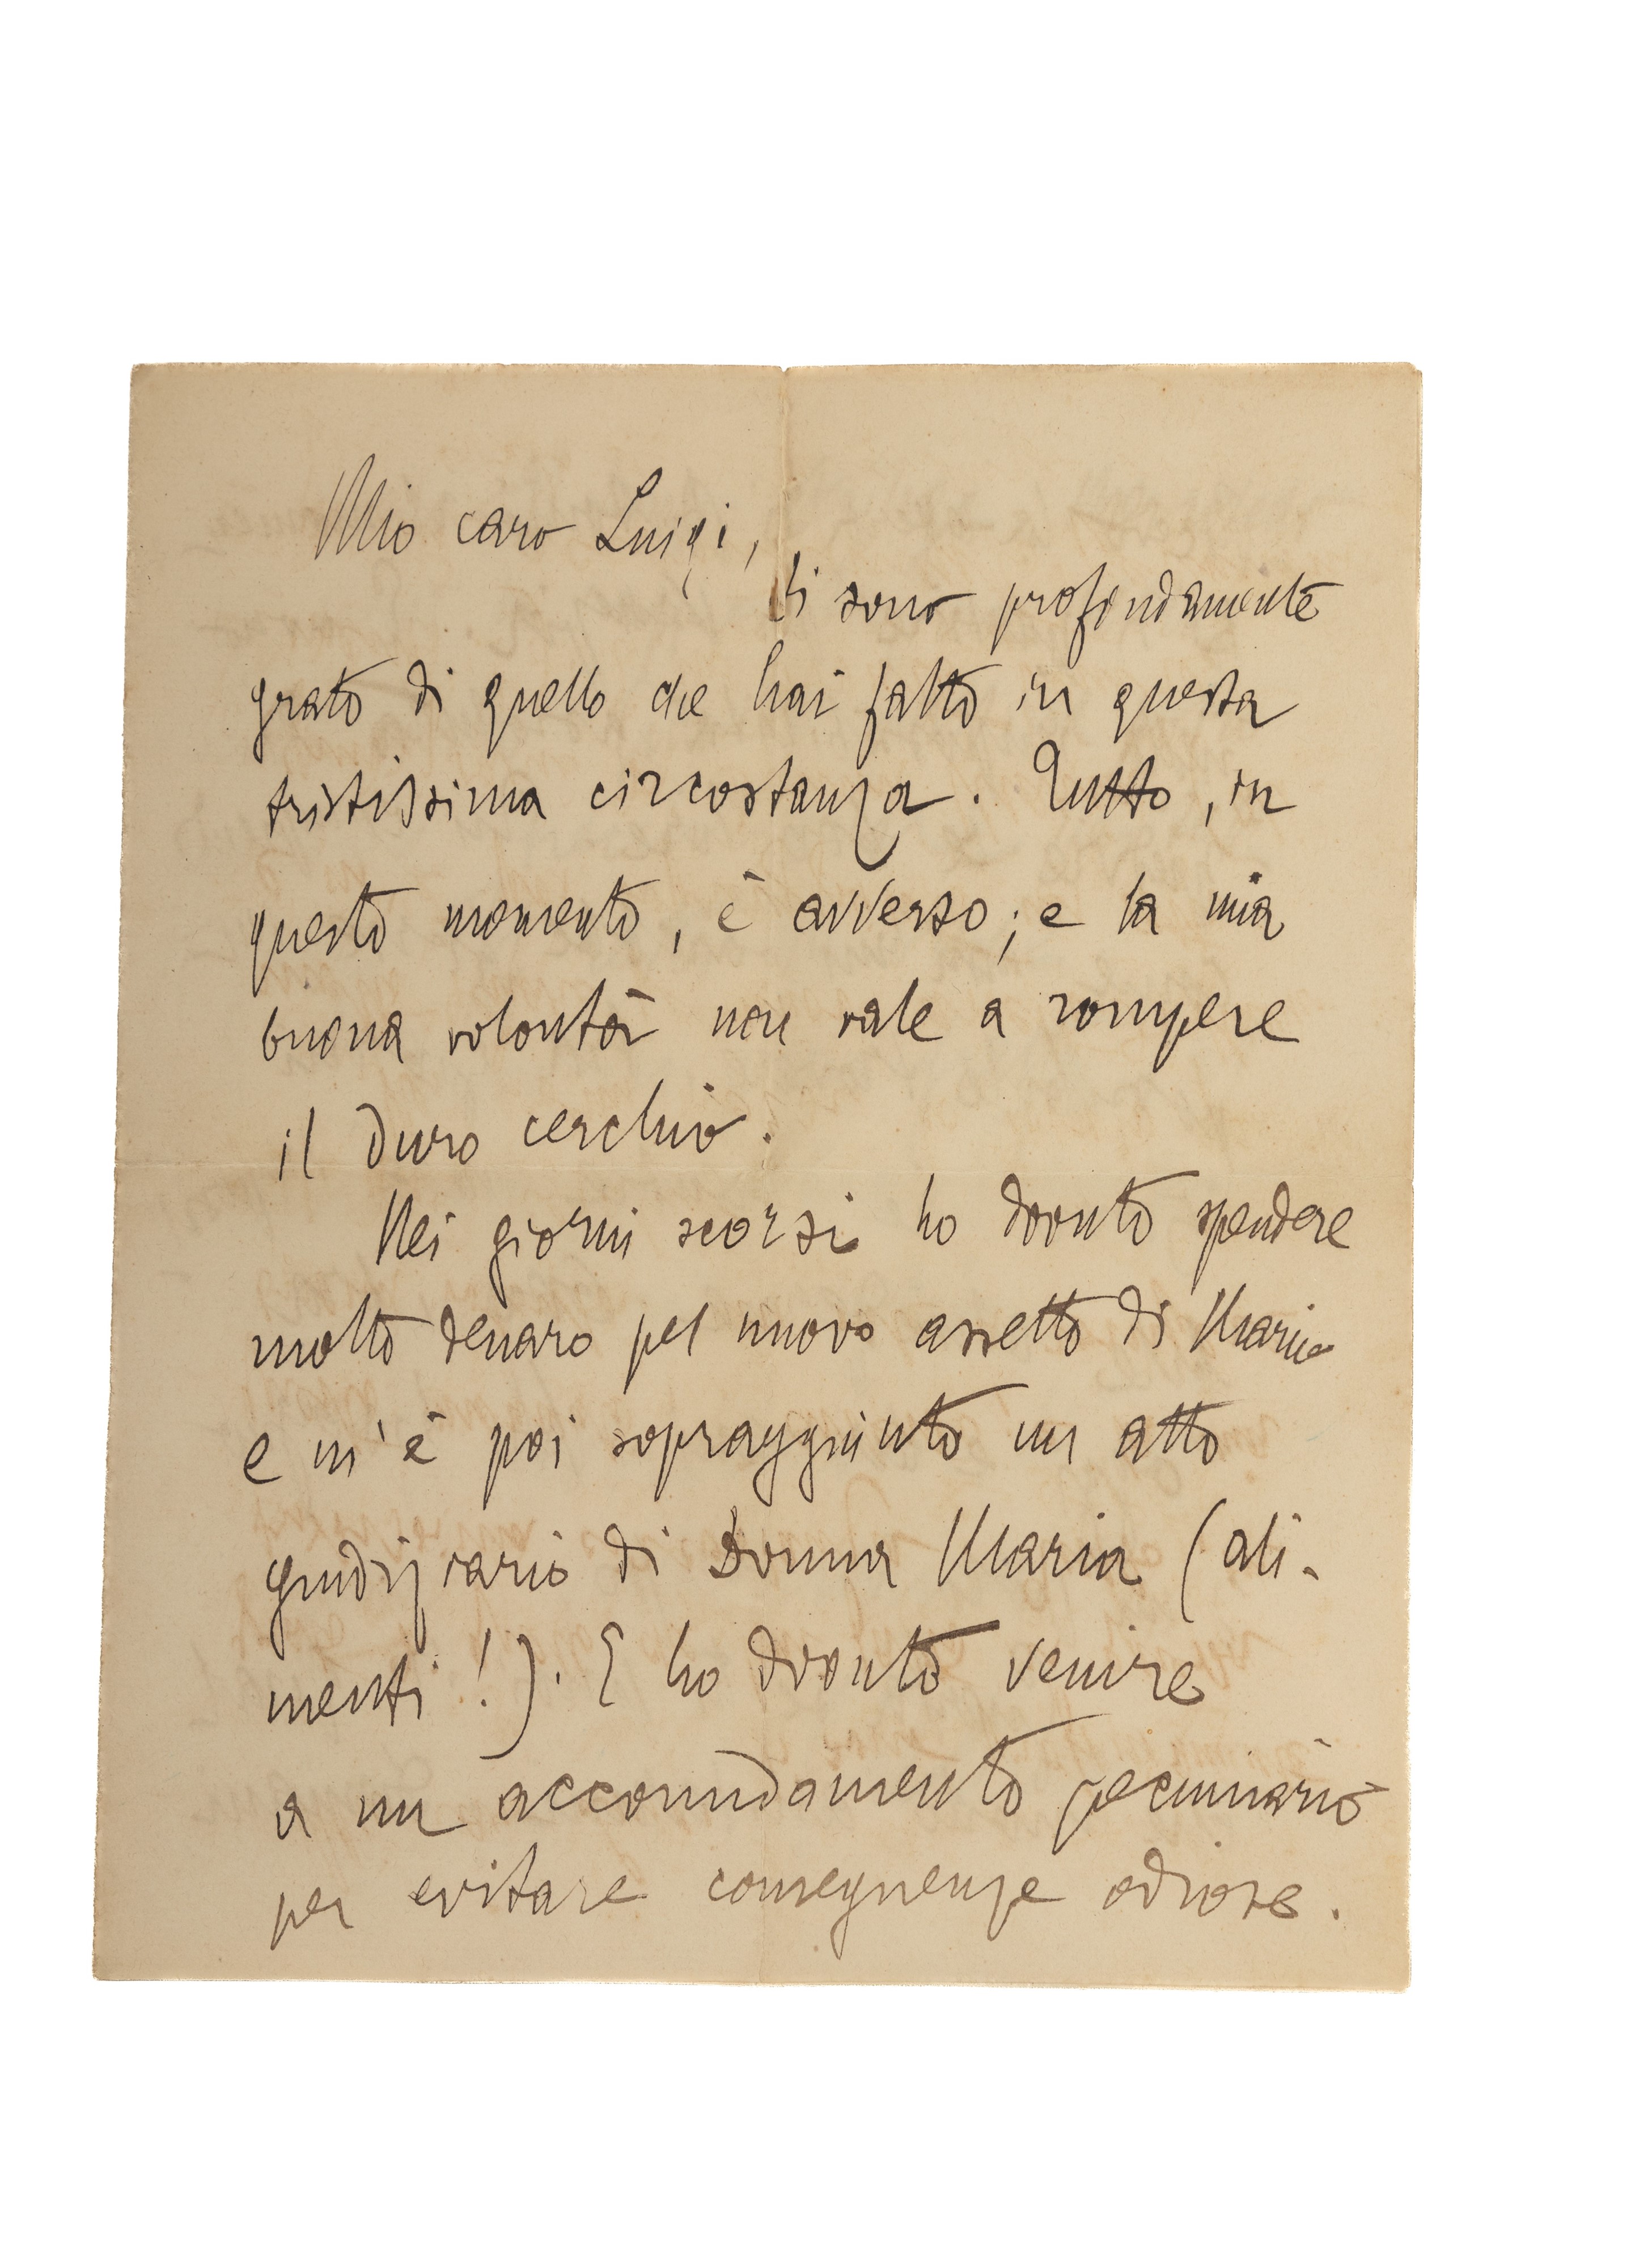 Mio caro Luigi,
ti sono profondamente
grato di quello che hai fatto in questa
tristissima circostanza. Tutto, in
questo momento, è avverso; e la mia
buona volontà non vale a rompere
il duro cerchio.
Nei giorni scorsi ho dovuto spendere
molto denaro pel nuovo assetto di Mario
e m'è poi sopraggiunto un atto
giudiziario di Donna Maria (ali-
menti!). E ho dovuto venire
a un accomodamento pecuniario
per evitare conseguenze odiose.